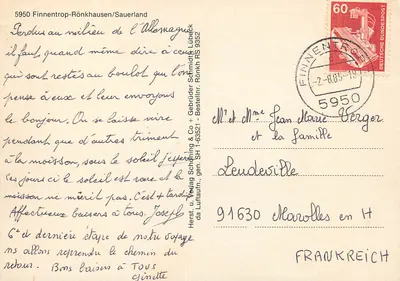 5950 Finnentrop-Rönkhausen/Sauerland
Perdus au milieu de l'Allemagne
il faut quand même dire à ceux
qui sont restés au boulot que l'on
pense à eux et leur envoyons
le bonjour. On se laisse vivre
pendant que d'autres triment
à la moisson, sous le soleil j'espère
ces jours ci le soleil est rare et la
moisson ne mûrit pas. C'est + tardif
Affectueux baisers à tous. Joseph
6e dernière étape de notre voyage
ns allons reprendre le chemin du
retour. Bons baisers à TOUS
Ginette
Herst. u. Verlag Schöning & Co · Gebrüder Schmidt, Lübeck
da Luftaufn., gen. SH 1-6352/ · Bestellnr. Rönkh RS 9352
60
DEUTSCHE BUNDESPOST
FINNENTROP
-2.-8.85-
5950
Mr et Mme Jean Marie Verger
et la famille
Leudeville
91630 Marolles en H
FRANKREICH